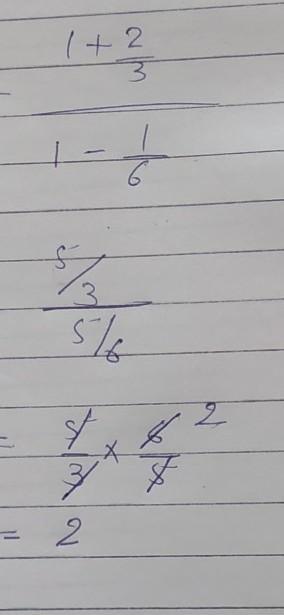 1 + 2/3
1 - 1/6
5/3
5/6
= 5/3 × 6/5 2
= 2